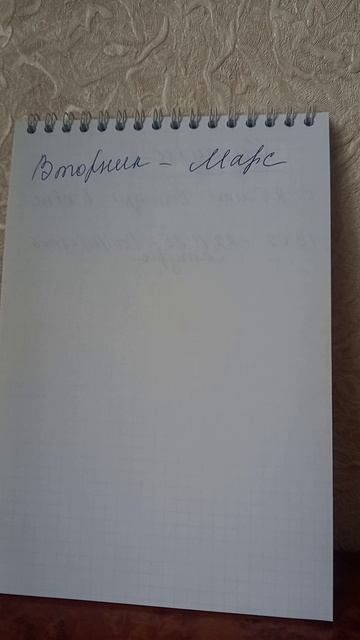 Вторник - Марс